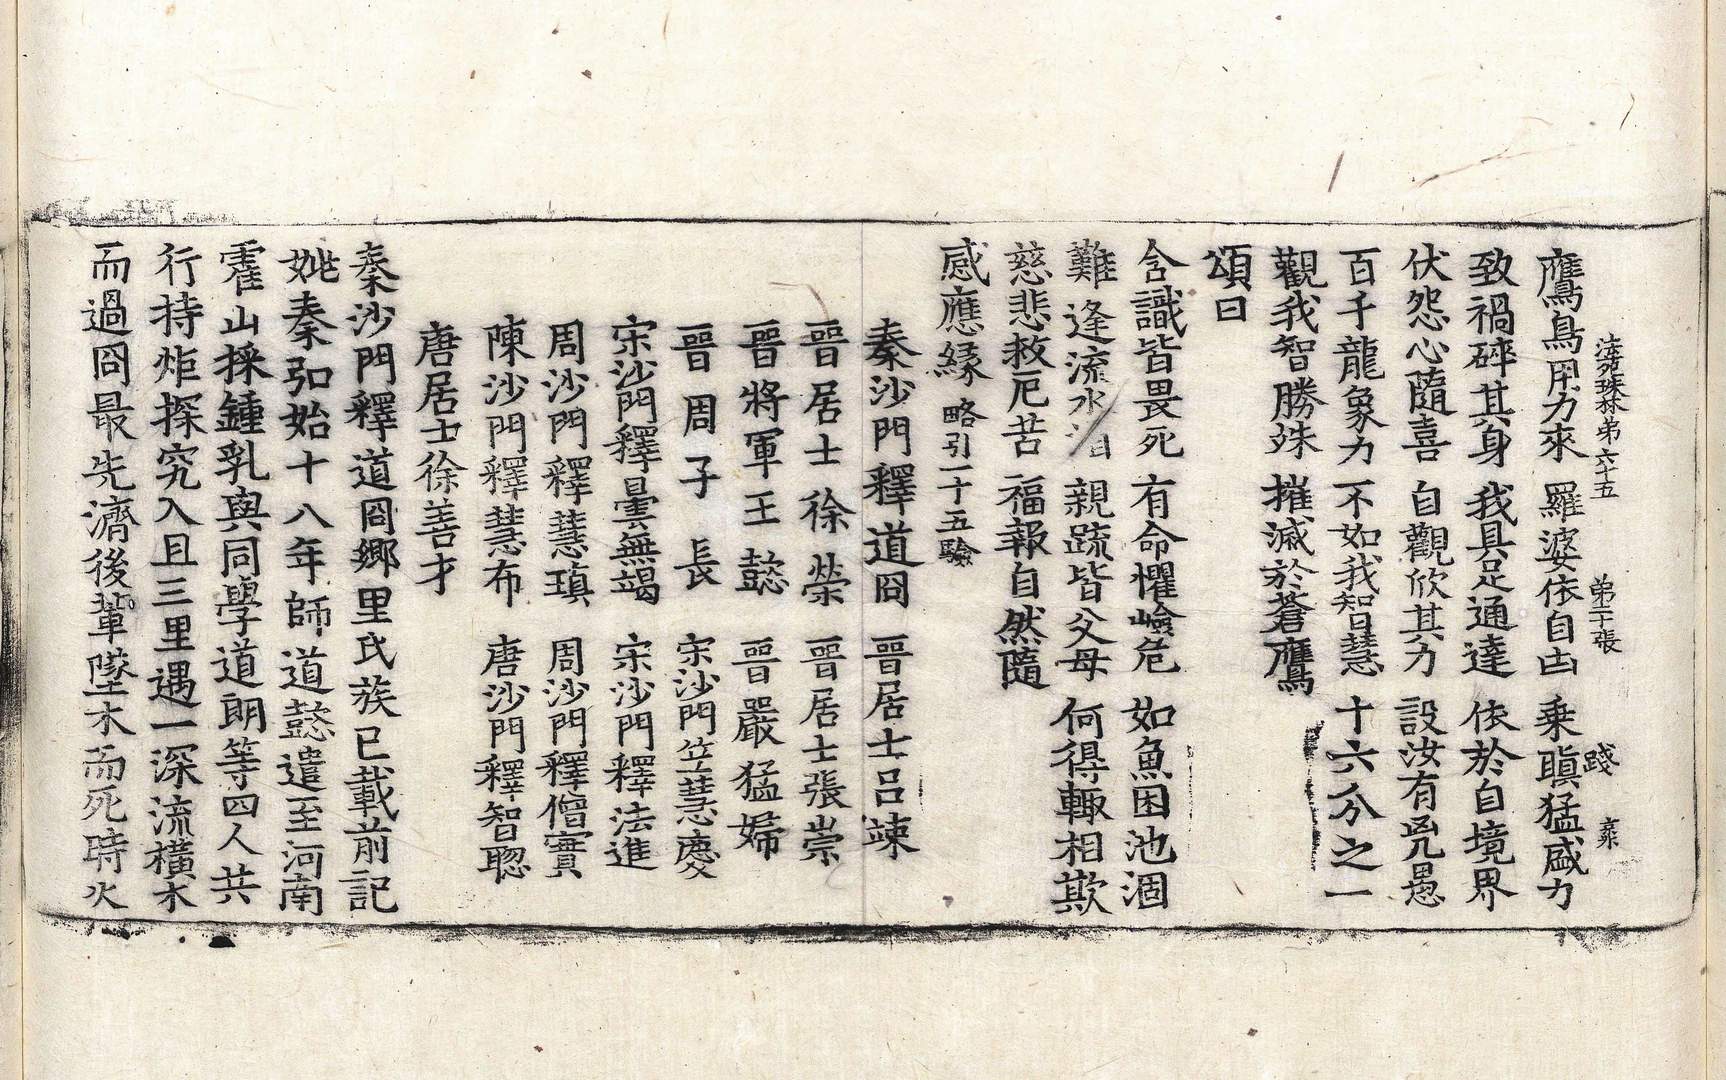 法苑珠林第六十五 第二十張 踐
鷹鳥用力來 羅婆依自山 乘瞋猛盛力
致禍碎其身 我具足通達 依於自境界
伏怨心隨喜 自觀欣其力 設汝有兇愚
百千龍象力 不如我智慧 十六分之一
觀我智勝殊 摧滅於蒼鷹
頌曰
含識皆畏死 有命懼嶮危 如魚困池涸
難逢流水 親疏皆父母 何得輙相欺
慈悲救厄苦 福報自然隨
感應緣 略引一十五驗
秦沙門釋道冏 晉居士呂竦
晉居士徐榮 晉居士張崇
晉將軍王懿 晉嚴猛婦
晉周子長 宋沙門竺慧慶
宋沙門釋曇無竭 宋沙門釋法進
周沙門釋慧瑱 周沙門釋僧實
陳沙門釋慧布 唐沙門釋智聰
唐居士徐善才
秦沙門釋道冏鄉里氏族已載前記
姚秦弘始十八年師道懿遣至河南
霍山採鍾乳與同學道朗等四人共
行持炬探究入且三里遇一深流橫木
而過冏最先濟後輩墜木而死時火